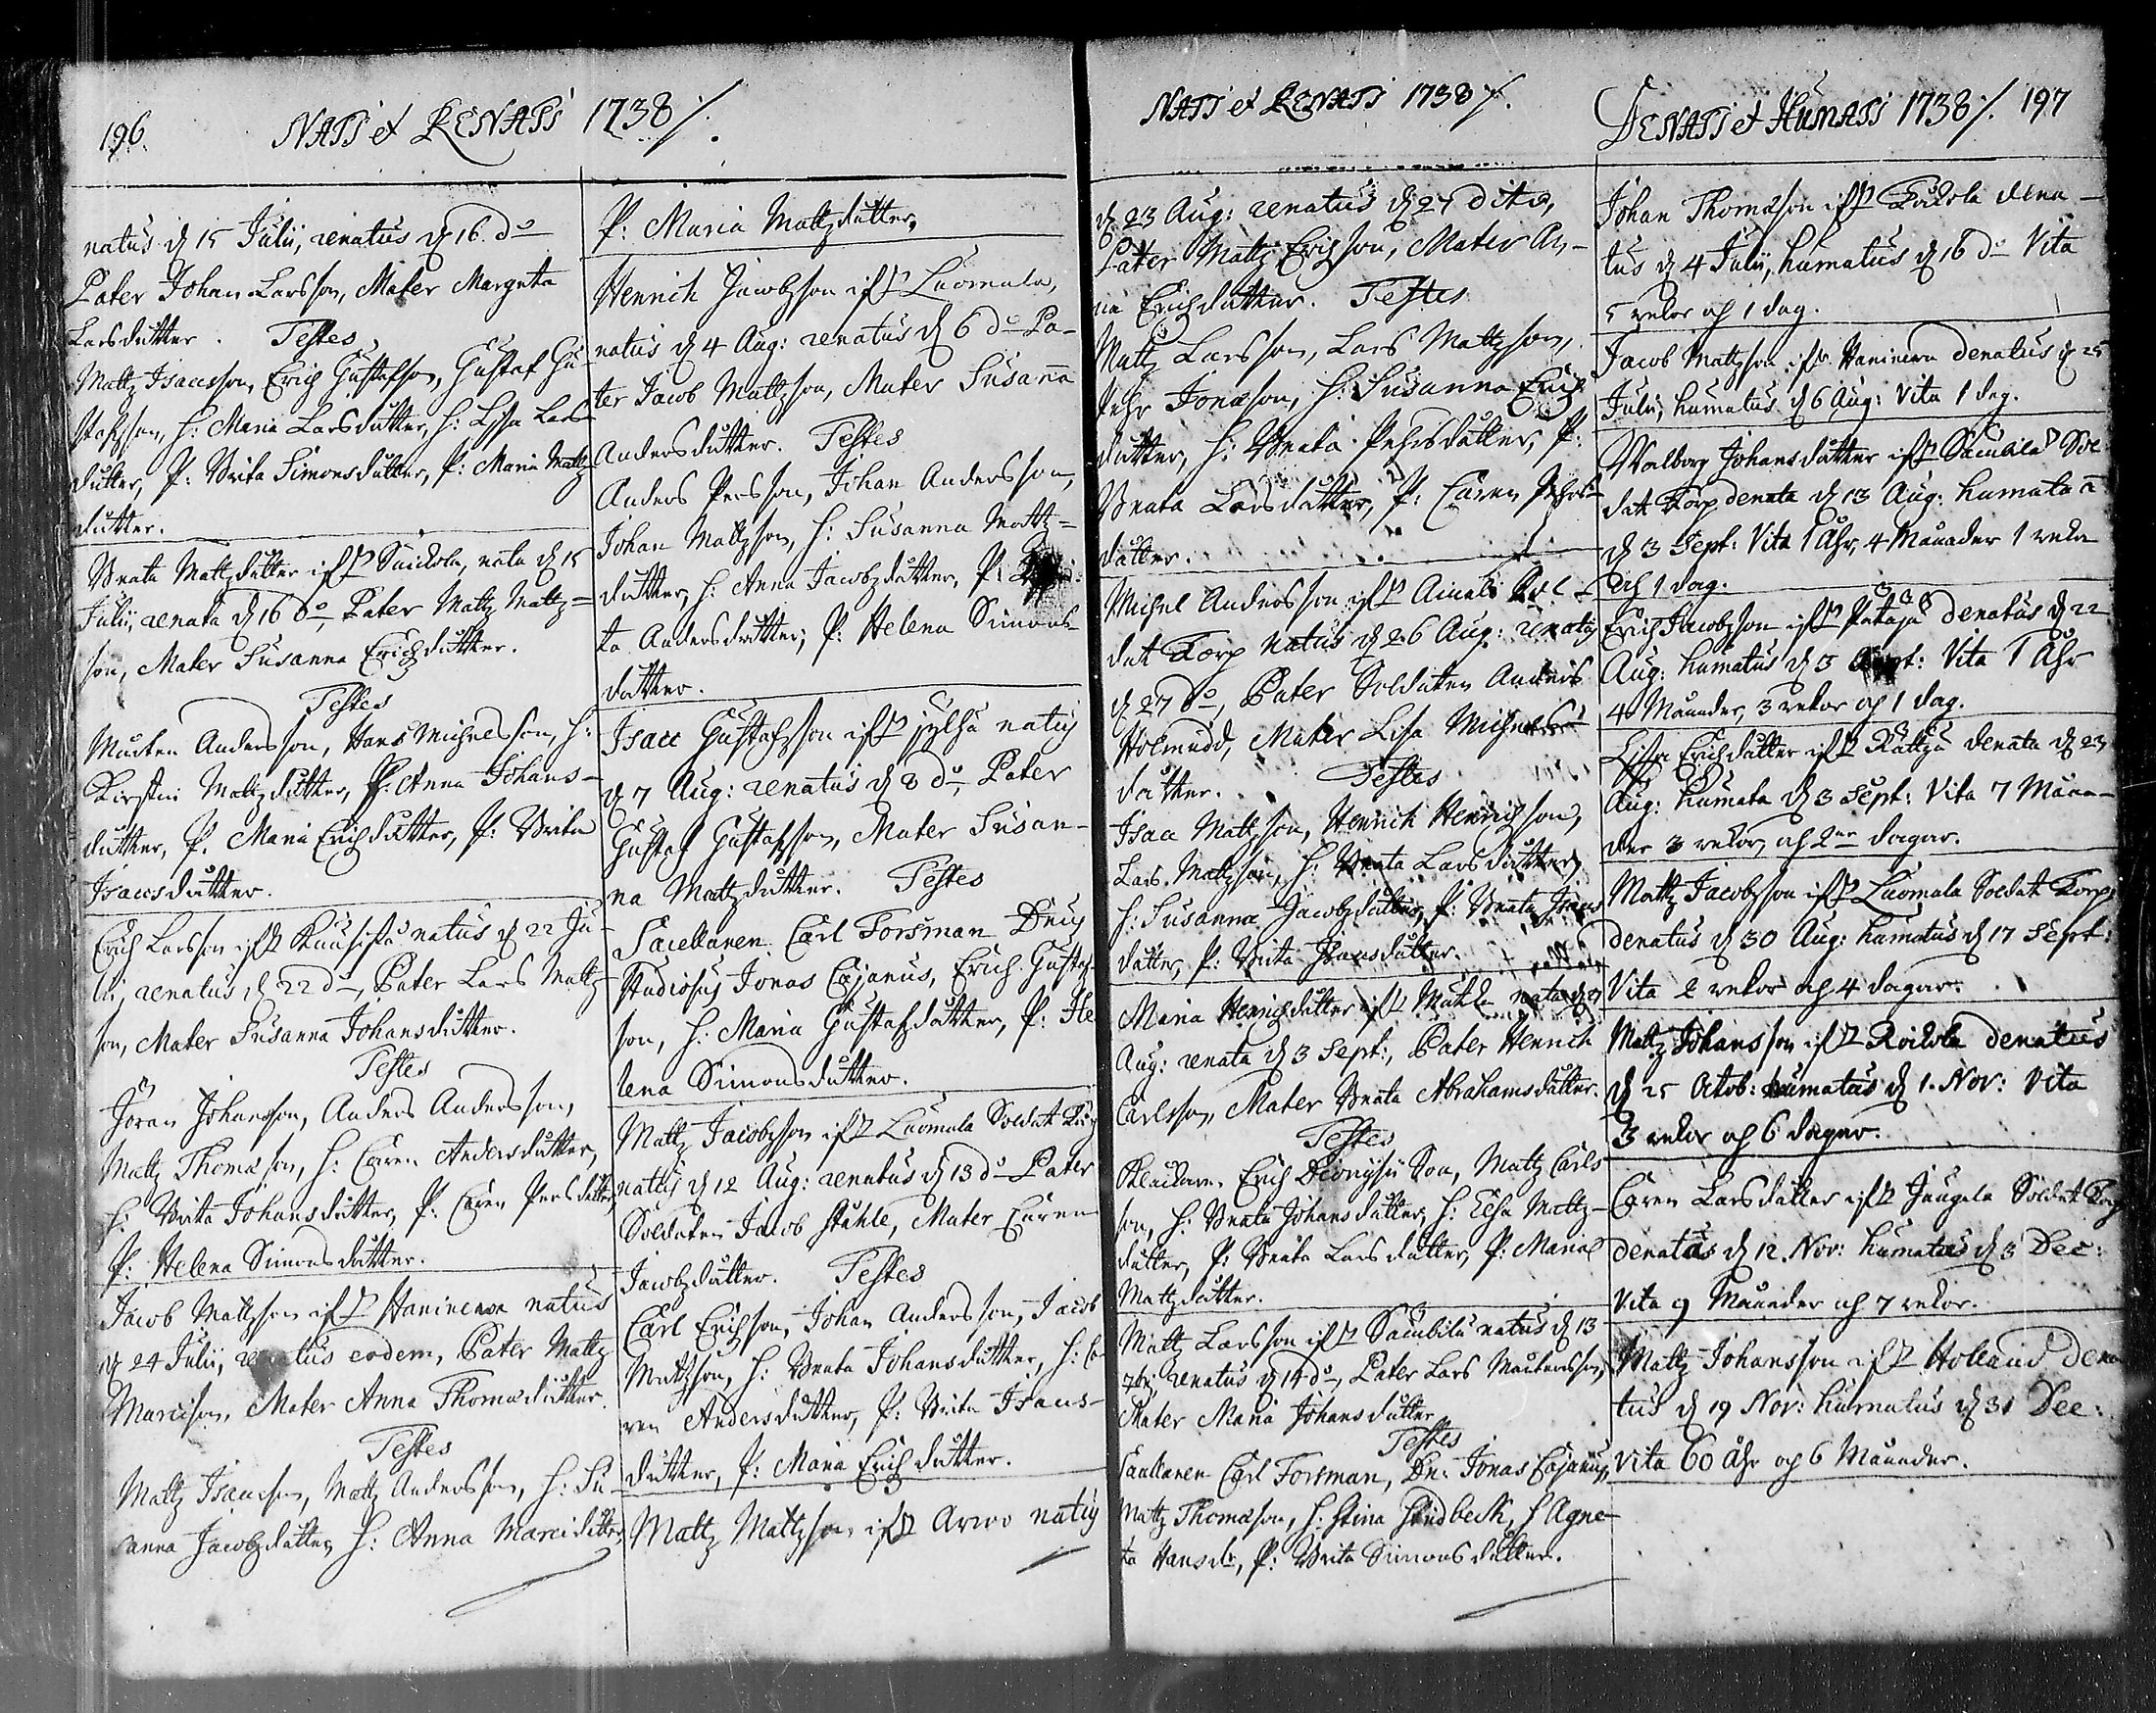 196. NATI et RENATI 1738 /.
natus d 15 Julii, renatus d 16 do
Pater Johan Larsson, Mater Margeta
Larsdutter. Testes
Mattz Isacsson, Erich Gustafsson, Gustaf Gu-
stafsson, h: Maria Larsdutter, h: Lisa Lars
dutter, P: Brita Simonsdutter, P: Maria Mattz
dutter.
Beata Mattzdutter ifr nata d 15
Julii, renata d 16 do, Pater Mattz Mattz=
son, Mater Susanna Erichdutter.
Testes
Mårten Andersson, Hans Michelsson, h:
Kirstin Mattzdutter, P: Anna Johans-
dutter, P. Maria Erichdutter, P: Brita
Isacsdutter.
Erich Larsson ifr natus d 22 Ju-
lii, renatus d 22 do, Pater Lars Mattz-
son, Mater Susanna Johansdutter.
Testes
Jöran Johansson, Anders Andersson,
Mattz Thomasson, h: Caren Andersdutter,
h: Brita Johansdutter, P: Caren Persdutter,
P: Helena Simonsdutter.
Jacob Mattzson ifr Haninena natus
d 24 Julii, renatus eodem, Pater Mattz
Marcison, Mater Anna Thomædutter.
Testes
Mattz Isacsson, Mattz Andersson, h: Su-
sanna Jacobzdutter, h: Anna Marcidutter,
P: Maria Mattzdutter.
Henrich Jacobzson ifr Luomala,
natus d 4 Aug: renatus d 6 do Pa-
ter Jacob Mattzson, Mater Susanna
Andersdutter. Testes
Anders Persson, Johan Andersson,
Johan Mattzson, h: Susanna Mattz=
dutter, h: Anna Jacobzdutter, P:
ta Andersdutter, P: Helena Simons
dutter.
Isaac Gustafsson ifr Jylhä natus
d 7 Aug: renatus d 8 do, Pater
Gustaf Gustafsson, Mater Susan-
na Mattzdutter. Testes
Sacellanen Carl Forsman Dnus
Studiosus Jonas Cajanus, Erich Gustaf-
son, h: Maria Gustafdutter, P: He
lena Simonsdutter.
Mattz Jacobzson ifr Luomala Soldat Torp
natus d 12 Aug: renatus d 13 do Pater
Soldaten Jacob Ståhle, Mater Caren
Jacobzdutter. Testes
Carl Erichson, Johan Andersson, Jacob
Mattzson, h: Beata Johansdutter, h: Ca
ren Andersdutter, P: Brita Isacs-
dutter, P: Maria Erichdutter.
Mattz Mattzson ifr Arwo natus
NATI et RENATI 1738 /.
d 23 Aug: renatus d 27 dito,
Pater Mattz Erichson, Mater An-
na Erichdutter. Testes
Mattz Larsson, Lars Mattzson,
Pehr Jonæson, h: Susanna Erich
dutter, h: Beata Pehrsdutter, P:
Beata Larsdutter, P: Caren Pehrs
dutter.
Michel Andersson ifr Ainali Sol-
dat Torp natus d 26 Aug: renatus
d 27 do, Pater Soldaten Anders
Holmudd, Mater Lisa Michels
dutter. Testes
Isaac Mattzson, Henrich Henrichson,
Lars Mattzson, h: Beata Larsdutter,
h: Susanna Jacobzdutter, P: Beata Isacs
dutter, P: Brita Isacsdutter.
Maria Henrichdutter ifr nata d
Aug: renata d 3 Sept:, Pater Henrich
Carlsson, Mater Beata Abrahamsdutter.
Testes
Klockaren Erich Dionysii Son, Mattz Carls
son, h: Beata Johansdutter, h: Elsa Mattz-
dutter, P: Beata Larsdutter, P: Maria
Mattzdutter.
Mattz Larsson ifr natus d 13
7bris renatus d 14 do, Pater Lars Mårtensson,
Mater Maria Johansdutter
Testes
Sacellanen Carl Forsman, Dn: Jonas Cajanus,
Mattz Thomæson, h: Stina h Agne-
ta Hansdr, P: Brita Simonsdutter.
DENATI et HUMATI 1738 /. 197
Johan Thomæson ifr dena-
tus d 4 Julii, humatus d 16 do Vita
5 wekor och 1 dag.
Jacob Mattzson ifr Haninena denatus d 25
Julii, humatus d 6 Aug: Vita 1 dag.
Walborg Johansdutter ifr Sol
dat Torp denata d 13 Aug: humata
d 3 Sept: Vita 1 Åhr, 4 Månader 1 weka
och 1 dag.
Erich Jacobzson ifr denatus d 22
Aug: humatus d 3 Sept: Vita 1 Åhr
4 Månader, 3 wekor och 1 dag.
Lisa Erichdutter ifr denata d 23
Aug: humata d 3 Sept: Vita 7 Måna-
der 3 wekor och 2ne dagar.
Mattz Jacobzson ifr Luomala Soldat Torp
denatus d 30 Aug: humatus d 17 Sept:
Vita 2 wekor och 4 dagar.
Mattz Johansson ifr denatus
d 25 Octob: humatus d 1. Nov: Vita
3 wekor och 6 dagar.
Caren Larsdutter ifr Soldat Torp
denata d 12. Nov: humata d 3 Dec:
Vita 9 Månader och 7 wekor.
Mattz Johansson ifr Dena
tus d 19 Nov: humatus d 31 Dec:
Vita 60 åhr och 6 Månader.